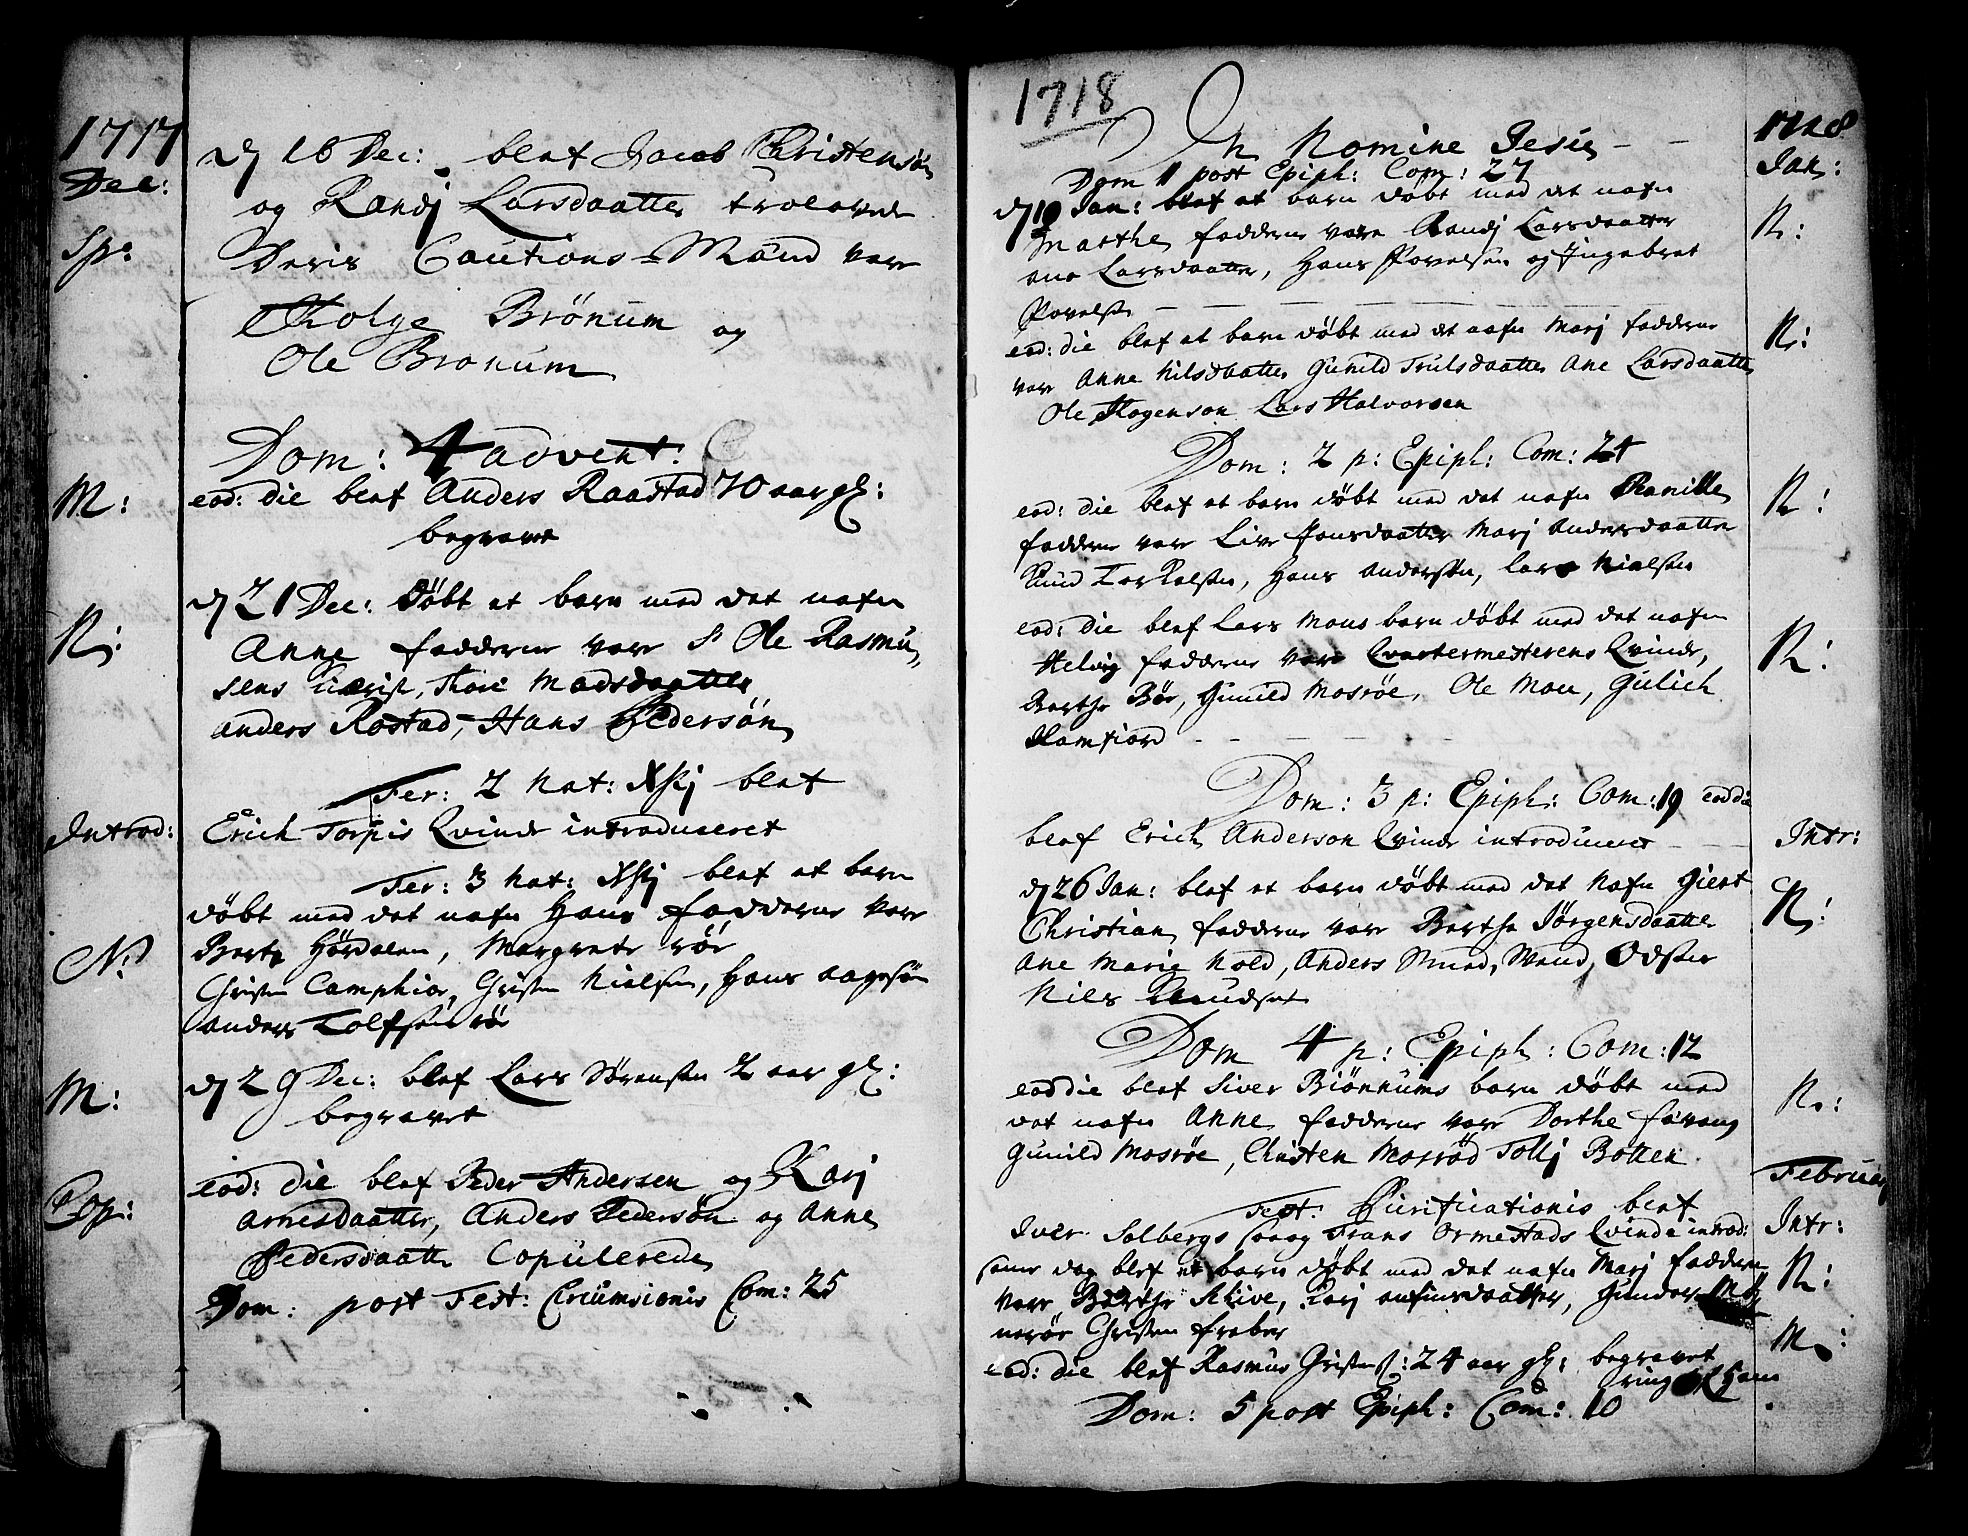 1717
Dec:
d 16 Dec: blef Jacob Christensøn
og Randj Larsdaatter trolovede
Sp:
Deris Cautions-Mænd vare
Tholge Brönum og
Ole Bronum
Dom: 4 advent:
M:
eod: die blef Anders Raastad 70 aar gl:
begravet
d 21 Dec: Döbt et barn med det nafn
N:
Anne fadderne vare Sr Ole Rasmu,
sens Madsdaatter
anders Rostad, Hans Pedersøn
Fer: 2 Nat: Xstj blef
Introd:
Erich Torpis Qvinde introduceret
Fer: 3 Nat: Xstj blef et barn
döbt med det nafn Hans fadderne vare
N:
Berte Hørdalen, Margrete röe
Christen Camphior, Christen Nielsen, Hans aagesön
anders Tolfsen röe
M:
d 29 Dec: blef Lars Sørensen 2 aar gl:
begravet
Cop:
eod: die blef Peder Andersen og Karj
Arnesdaatter, Anders Pedersøn og Anne
Pedersdaatter Copulerede
Dom: post Fest: Circumsionis Com: 25
1718
1718
In Nomine Jesu
Jan:
Dom 1 post Epiph: Com: 27
d 19 Jan: blef et barn döbt med det nafn
N:
Marthe fadderne vare Randj Larsdaatter
ane Larsdaatter, Hans Povelsen og Ingebret
Povelsen
N:
eod: die blef et barn döbt med det nafn Marj fadderne
vare Anne Nilsdaatter Gunild Trulsdaatter Ane Larsdaatter
Ole Hogenson Lars Halvorsen
Dom: 2 p: Epiph: Com: 24
N:
eod: die blef et barn döbt med det nafn Pernille
fadderne vare Live Jonsdaatter Marj Andersdaatter
Knud Torkelsen, Hans Andersøn, Lars Nielsen
N:
eod: die blef Lars Mous barn döbt med det nafn
Helvig fadderne vare Qvartermesterens Qvinde,
Berthe Bör, Gunild Mosröe, Ole Mou, Gulich
Ramfiord
Dom: 3 p: Epiph: Com: 19 eod die
Intr:
blef Erich Anderson Qvinde introduceret
N:
d 26 Jan: blef et barn döbt med det Nafn Giert
Christian fadderne vare Berthe Jörgensdaatter
Ane Marie Hold, Anders
Nils Knudsen
Dom 4 p: Epiph: Com: 12
N:
eod die blef Siver Biönnums barn döbt med
det nafn Anne fadderne vare Dorthe
Gunild Mosröe, Christen Mosröd Tollj Botten
Februarj
Fest: Purificationis blef
Intr:
Iver Solbergs Frans Ormestads Qvinde introd:
N:
samme dag blef et barn döbt med det nafn Marj fadderne
vare Berthe Skive, Karj Gunder
Christen
M:
eod: die blef Rasmus Christens: 24 aar gl: begravet
Dom: 5 post Epiph: Com: 10